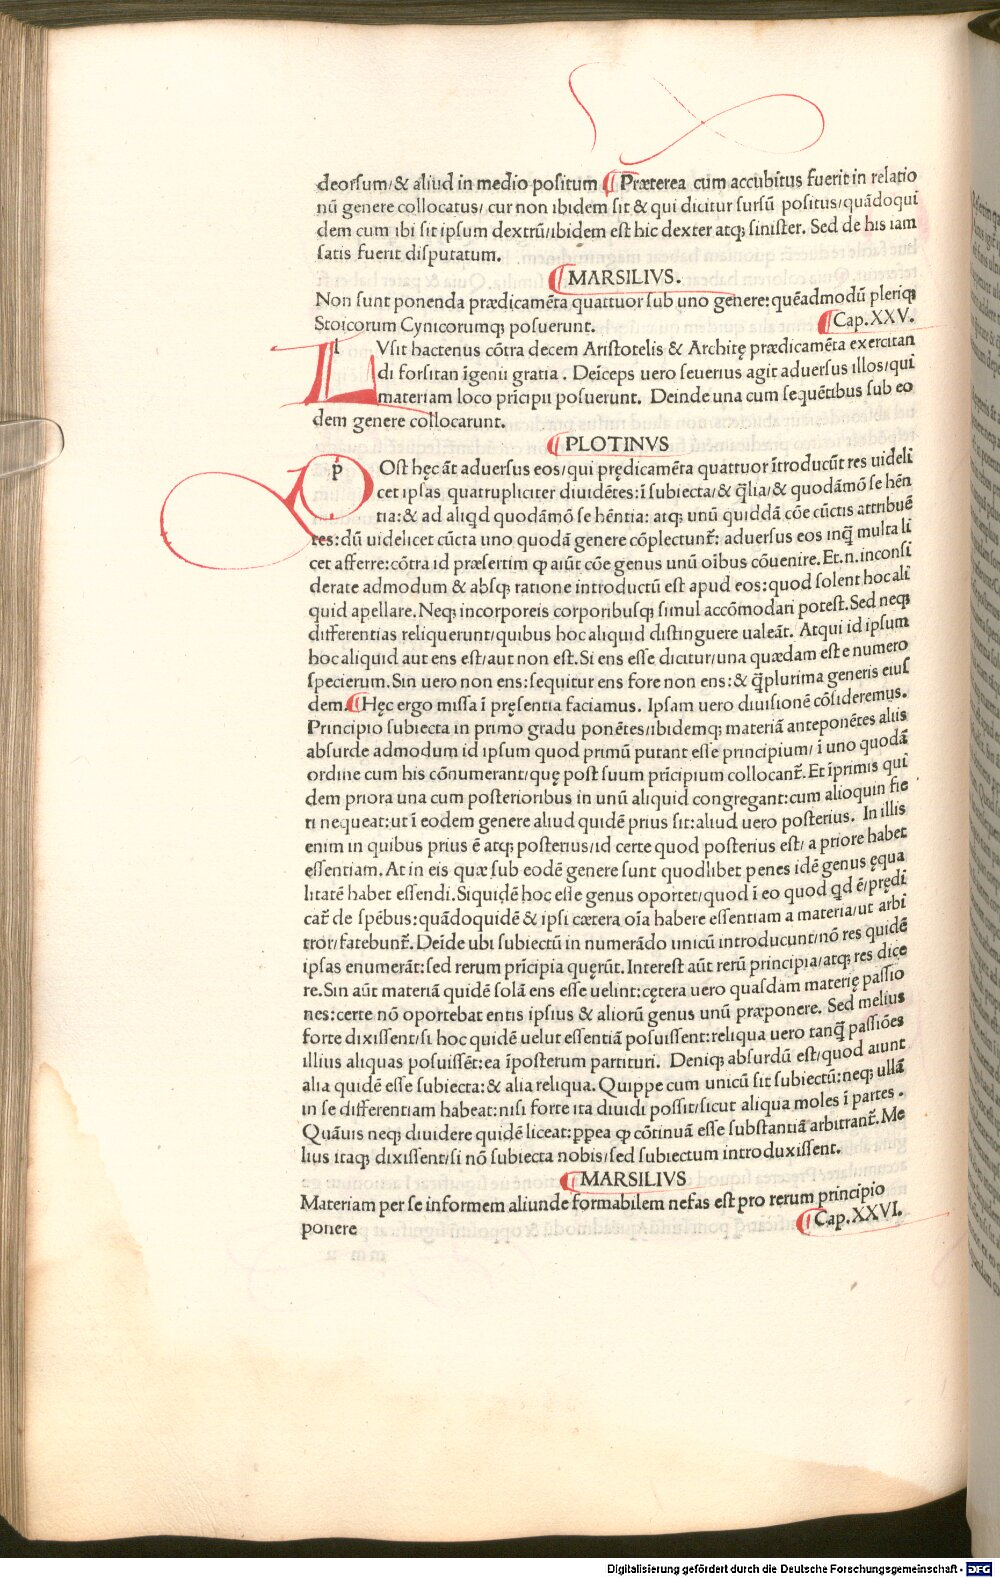 deorsum/& aliud in medio positum ¶ Præterea cum accubitus fuerit in relatio
nũ genere collocatus/ cur non ibidem sit & qui dicitur sursũ positus/quãdoqui
dem cum ibi sit ipsum dextrũ/ibidem est hic dexter atqꝫ sinister. Sed de his iam
satis fuerit disputatum.
¶ MARSILIVS.
Non sunt ponenda prædicamẽta quattuor sub uno genere: quẽadmodũ pleriqꝫ
Stoicorum Cynicorumqꝫ posuerunt. ¶ Cap.XXV.
LVsit hactenus cõtra decem Aristotelis & Architę prædicamẽta exercitan
di forsitan ĩgenii gratia. Deĩceps uero seuerius agit aduersus illos/qui
materiam loco prĩcipii posuerunt. Deinde una cum sequẽtibus sub eo
dem genere collocarunt.
¶ PLOTINVS
POst hęc ãt aduersus eos/qui prędicamẽta quattuor ĩtroducũt res uideli
cet ipsas quatrupliciter diuidẽtes: ĩ subiecta/& q̃lia/& quodãmõ se hẽn
tia: & ad aliqd quodãmõ se hẽntia: atqꝫ unũ quiddã cõe cũctis attribuẽ
tes: dũ uidelicet cũcta uno quodã genere cõplectunt̃: aduersus eos inq̃ multa li
cet afferre: cõtra id præsertim ꝙ aiũt cõe genus unũ oĩbus cõuenire. Et.n. inconsi
derate admodum & absqꝫ ratione introductũ est apud eos: quod solent hoc ali
quid apellare. Neqꝫ incorporeis corporibusqꝫ simul accõmodari potest. Sed neqꝫ
differentias reliquerunt/quibus hoc aliquid distinguere ualeãt. Atqui id ipsum
hoc aliquid aut ens est/aut non est. Si ens esse dicitur/una quædam est e numero
specierum. Sin uero non ens: sequitur ens fore non ens: & q̃plurima generis eius
dem. ¶ Hęc ergo missa ĩ pręsentia faciamus. Ipsam uero diuisionẽ cõsideremus.
Principio subiecta in primo gradu ponẽtes/ibidemqꝫ materiã anteponẽtes aliis
absurde admodum id ipsum quod primũ putant esse principium/ ĩ uno quodã
ordine cum his cõnumerant/quę post suum prĩcipium collocant̃. Et ĩprimis qui
dem priora una cum posterioribus in unũ aliquid congregant: cum alioquin fie
ri nequeat: ut ĩ eodem genere aliud quidẽ prius sit: aliud uero posterius. In illis
enim in quibus prius ẽ atqꝫ posterius/id certe quod posterius est/ a priore habet
essentiam. At in eis quæ sub eodẽ genere sunt quodlibet penes idẽ genus ęqua
litatẽ habet essendi. Siquidẽ hoc esse genus oportet/quod ĩ eo quod qd ẽ/prędi
cat̃ de spẽbus: quãdoquidẽ & ipsi cætera oĩa habere essentiam a materia/ut arbi
tror/fatebunt̃. Deĩde ubi subiectũ in numerãdo unicũ introducunt/nõ res quidẽ
ipsas enumerãt: sed rerum prĩcipia quęrũt. Interest aũt rerũ principia/atqꝫ res dice
re. Sin aũt materiã quidẽ solã ens esse uelint: cętera uero quasdam materię passio
nes: certe nõ oportebat entis ipsius & aliorũ genus unũ præponere. Sed melius
forte dixissent/si hoc quidẽ uelut essentiã posuissent: reliqua uero tanq̃ passiões
illius aliquas posuissẽt: ea ĩposterum partituri. Deniqꝫ absurdũ est/quod aiunt
alia quidẽ esse subiecta: & alia reliqua. Quippe cum unicũ sit subiectũ: neqꝫ ullã
in se differentiam habeat: nisi forte ita diuidi possit/sicut aliqua moles ĩ partes.
Quãuis neqꝫ diuidere quidẽ liceat: ꝓpea ꝙ cõtinuã esse substantiã arbitrant̃. Me
lius itaqꝫ dixissent/si nõ subiecta nobis/sed subiectum introduxissent.
¶ MARSILIVS
Materiam per se informem aliunde formabilem nefas est pro rerum principio
ponere ¶ Cap.XXVI.
Digitalisierung gefördert durch die Deutsche Forschungsgemeinschaft - DFG